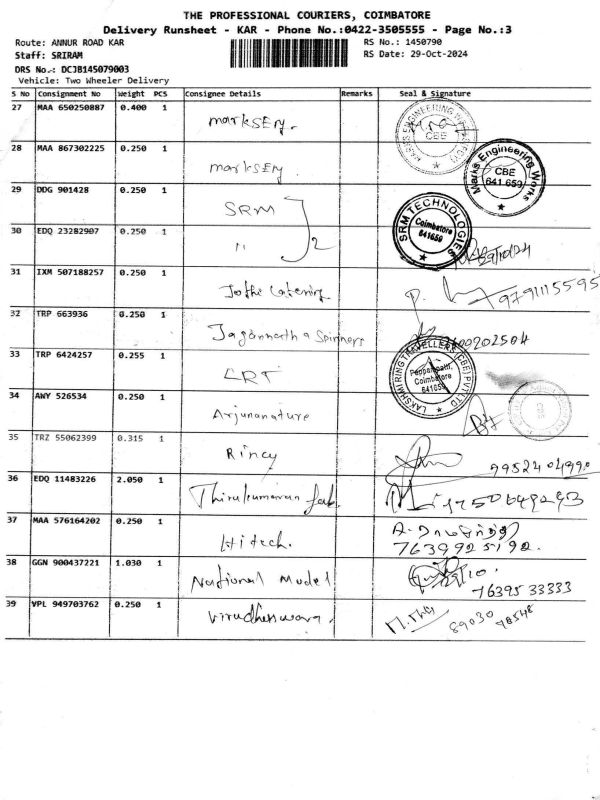 THE PROFESSIONAL COURIERS, COIMBATORE
Delivery Runsheet - KAR - Phone No.:0422-3505555 - Page No.:3
Route: ANNUR ROAD KAR
RS No.: 1450790
Staff: SRIRAM
RS Date: 29-Oct-2024
DRS No.: DCJB145079003
Vehicle: Two Wheeler Delivery
S No Consignment No Weight PCS Consignee Details Remarks Seal & Signature
27 MAA 650250887 0.400 1 marksEng.
CBE
28 MAA 867302225 0.250 1 marksEng.
Marks Engineering Works
CBE
641 659
29 DDG 901428 0.250 1 SRM
SRM TECHNOLOGIES
Coimbatore
641659
30 EDQ 23282907 0.250 1 " 2
31 IXM 507188257 0.250 1 Jothi Catering
32 TRP 663936 0.250 1 Jagannatha Spinners
33 TRP 6424257 0.255 1 LRT
LAKSHMI RING TRAVELLERS (CBE) PVT LTD
Coimbatore
641659
34 AWY 526534 0.250 1 Arjunanature
35 TRZ 55062399 0.315 1 Rincy
9952404990
36 EDQ 11483226 2.050 1 Thirukumaran fab.
37 MAA 576164202 0.250 1 Hitech.
7639925192.
38 GGN 900437221 1.030 1 National Model
7639533333
39 VPL 949703762 0.250 1 Virudheswara.
89030 78548